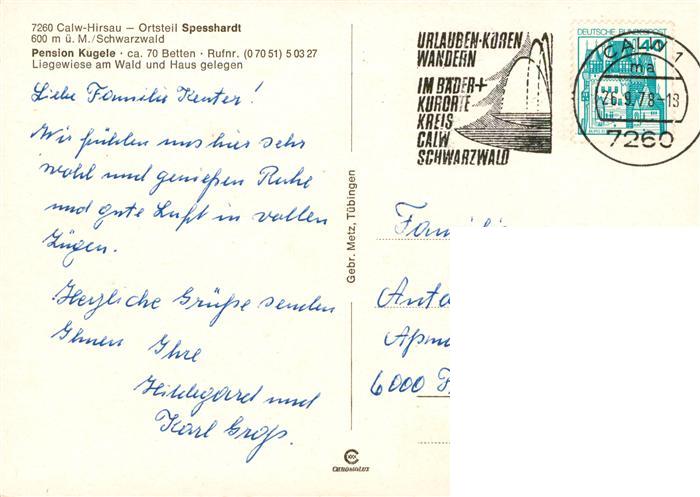 7260 Calw-Hirsau – Ortsteil Spesshardt
600 m ü. M./Schwarzwald
Pension Kugele · ca. 70 Betten · Rufnr. (0 70 51) 5 03 27
Liegewiese am Wald und Haus gelegen
Liebe Familie Kenter!
Wir fühlen uns hier sehr
wohl und genießen Ruhe
und gute Luft in vollen
Zügen.
Herzliche Grüße senden
Ihnen Ihre
Hildegard und
Karl Groß.
Gebr. Metz, Tübingen
CHROMOLUX
URLAUBEN-KUREN
WANDERN
IM BÄDER+
KURORTE
KREIS
CALW
SCHWARZWALD
DEUTSCHE BUNDESPOST
40
CALW 1
ma
26.9.78-18
7260
Familie
Anto
6000 F